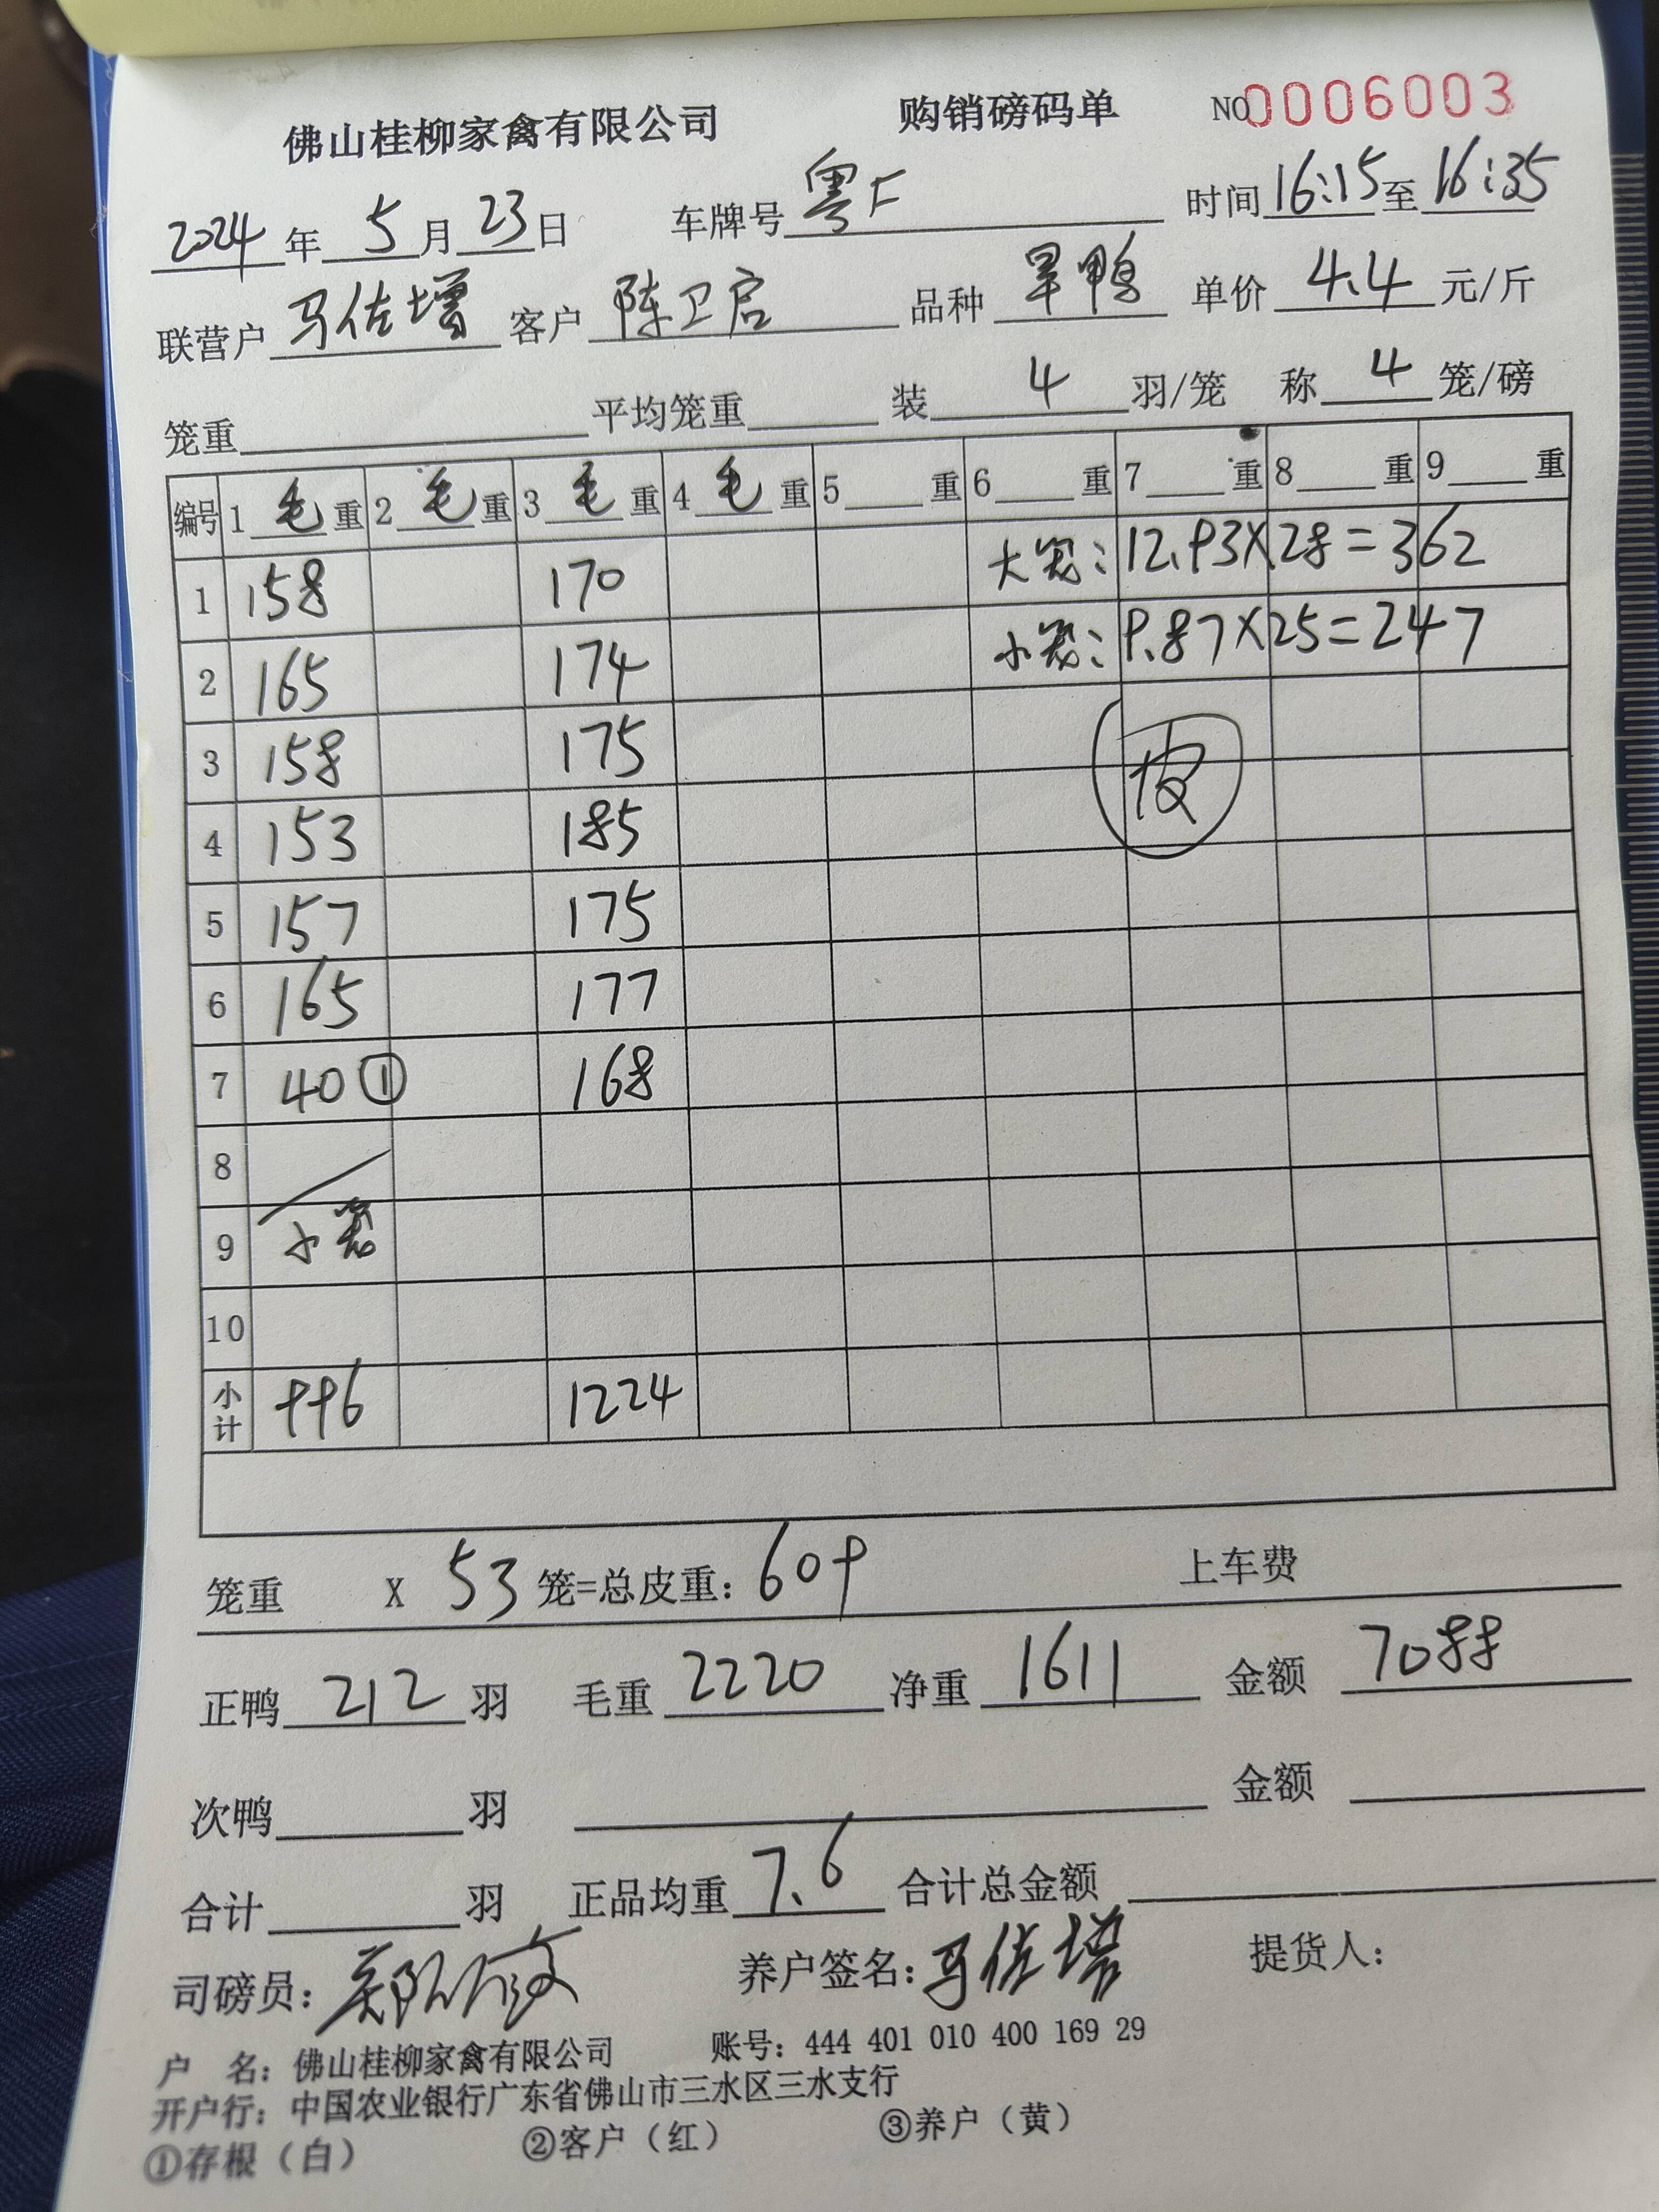 佛山桂柳家禽有限公司 购销磅码单 NO0006003
2024 年 5 月 23 日 车牌号 粤F 时间 16:15 至 16:35
联营户 马佐增 客户 陈卫启 品种 旱鸭 单价 4.4 元/斤
笼重 平均笼重 装 4 羽/笼 称 4 笼/磅
编号 1 毛 重 2 毛 重 3 毛 重 4 毛 重 5 重 6 重 7 重 8 重 9 重
1 158 170 大笼: 12.93X28=362
2 165 174 小笼: 9.87X25=247
3 158 175 皮
4 153 185
5 157 175
6 165 177
7 40 ① 168
8
9 小笼
10
小计 996 1224
笼重 X 53 笼=总皮重: 609 上车费
正鸭 212 羽 毛重 2220 净重 1611 金额 7088
次鸭 羽 金额
合计 羽 正品均重 7.6 合计总金额
司磅员: 养户签名: 马佐增 提货人:
户 名: 佛山桂柳家禽有限公司 账号: 444 401 010 400 169 29
开户行: 中国农业银行广东省佛山市三水区三水支行
①存根（白） ②客户（红） ③养户（黄）